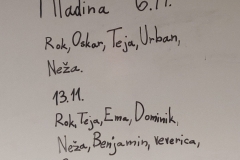 Mladina 6.11.
Rok, Oskar, Teja, Urban,
Neža.
13.11.
Rok, Teja, Ema, Dominik,
Neža, Benjamin, veverica,